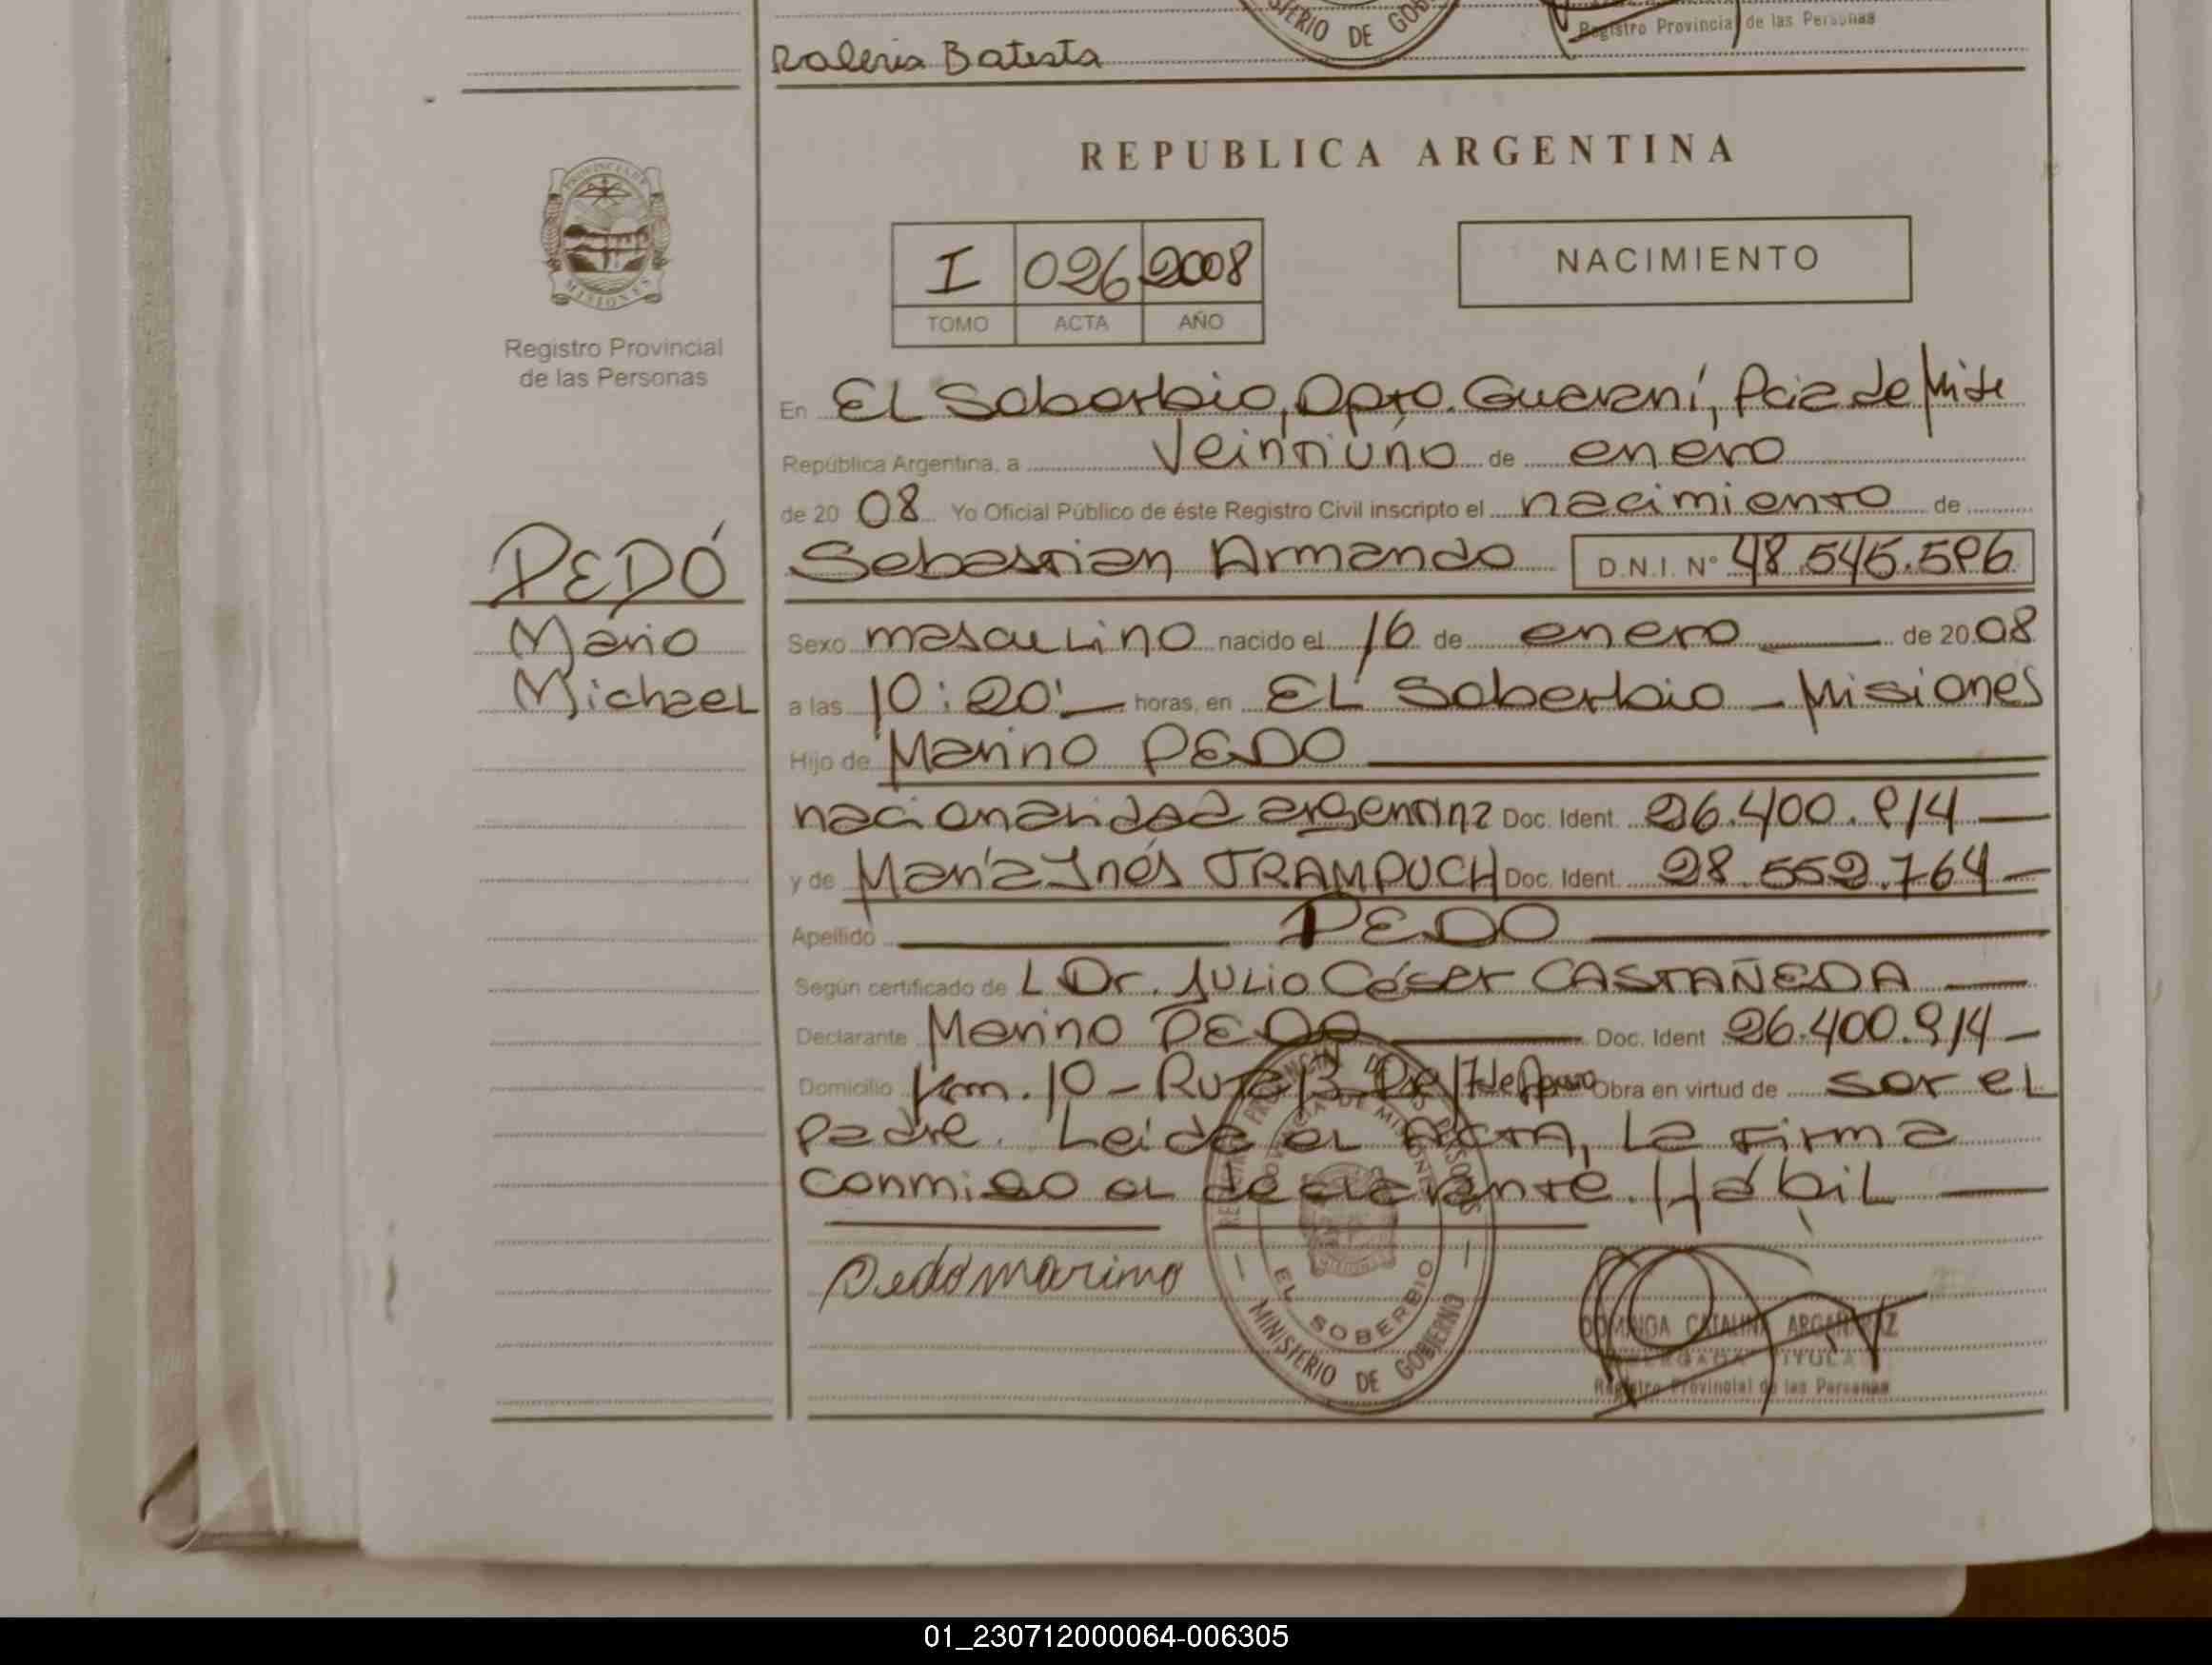 Valeria Batista
Registro Provincial de las Personas
MINISTERIO DE GOB
REPUBLICA ARGENTINA
PROVINCIA DE MISIONES
Registro Provincial
de las Personas
I 026 2008
TOMO ACTA AÑO
NACIMIENTO
En EL Soberbio, Dpto. Guaraní, Pcia de Mise
República Argentina, a Veintiuno de enero
de 20 08 Yo Oficial Público de éste Registro Civil inscripto el nacimiento de
PEDÓ
Sebastian Armando D.N.I. Nº 48.545.596
Mario
Michael
Sexo masculino nacido el 16 de enero de 20 08
a las 10:20' horas, en EL Soberbio - Misiones
Hijo de Marino PEDO
nacionalidad argentina Doc. Ident. 26.400.914
y de María Inés TRAMPUCH Doc. Ident. 28.552.764
Apellido PEDO
Según certificado de L Dr. JULIO César CASTAÑEDA
Declarante Marino PEDO Doc. Ident 26.400.914
Domicilio Km. 10 - Ruta 13 17 de Agosto Obra en virtud de ser el
padre. Leida el ACTA, La firma
conmigo el declarante. Hábil
Pedo marino
EL SOBERBIO
MINISTERIO DE GOBIERNO
DOMINGA CATALINA
DELEGADA TITULAR
Registro Provincial de las Personas
01_230712000064-006305